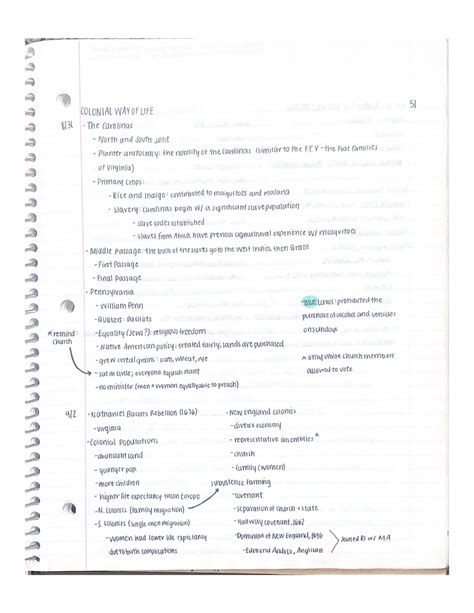 COLONIAL WAY OF LIFE
51
8/31
- The Carolinas
- North and South split
- Planter aristocracy: the nobility of the Carolinas (similar to the F.F.V - the First Families
of Virginia)
- Primary Crops:
- Rice and Indigo: contributed to mosquitoes and malaria
- Slavery: Carolinas begin w/ a significant slave population
- slave codes established
- slaves from Africa have previous agricultural experience w/ mosquitos
- Middle Passage: the bulk of the slaves go to the West Indies, then Brazil
- First Passage
- Final Passage
- Pennsylvania
- William Penn
- Quakers: Pacifists
- Equality (Jews?): religious freedom
- Native American policy: treated fairly; lands are purchased
- grew cereal grains: oats, wheat, rye
- sat in circle; everyone equal
- no minister (men + women equally to preach)
* remind:
church
- Blue Laws: prohibited the
purchase of alcohol and vehicles
on Sunday
* only white church men
allowed to vote
9/2
- Nathaniel Bacons Rebellion (1676)
- Virginia
- Colonial Populations
- abundant land
- younger pop.
- more children
- higher life expectancy than Europe
- N. colonies (family migration)
- S. colonies (single men migration)
- Women had lower life expectancy
due to birth complications
- New England colonies
- diverse economy
- representative assemblies *
- church
- family (women)
subsistence farming
- covenant
- separation of church + state
- Halfway covenant, 1662
- Dominion of New England, 1686
- Edmund Andros, Anglican
Joined RI w/ MA